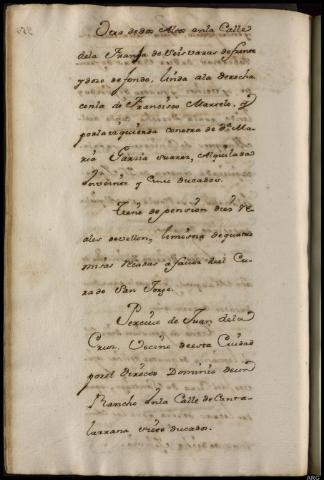 Otra de dos Altos en la Calle
dela Franja de Seis varas de frente
y doze de fondo, linda ala derecha
con la de Francisco Marcelo, y
por la izquierda con otra de Dª Ma
ria Garzia Suarez, Alquilada
en veinte y cinco ducados.
Tiene de pension diez Re
ales de vellon, limosna de quatro
misas rezadas a favor del Cu
rado San Jorge.
Percive de Juan dela
Cruz. Vecino de esta Ciudad
por el Directo Dominio de un
Rancho en la Calle de Canta
larrana siete ducados.
ARG